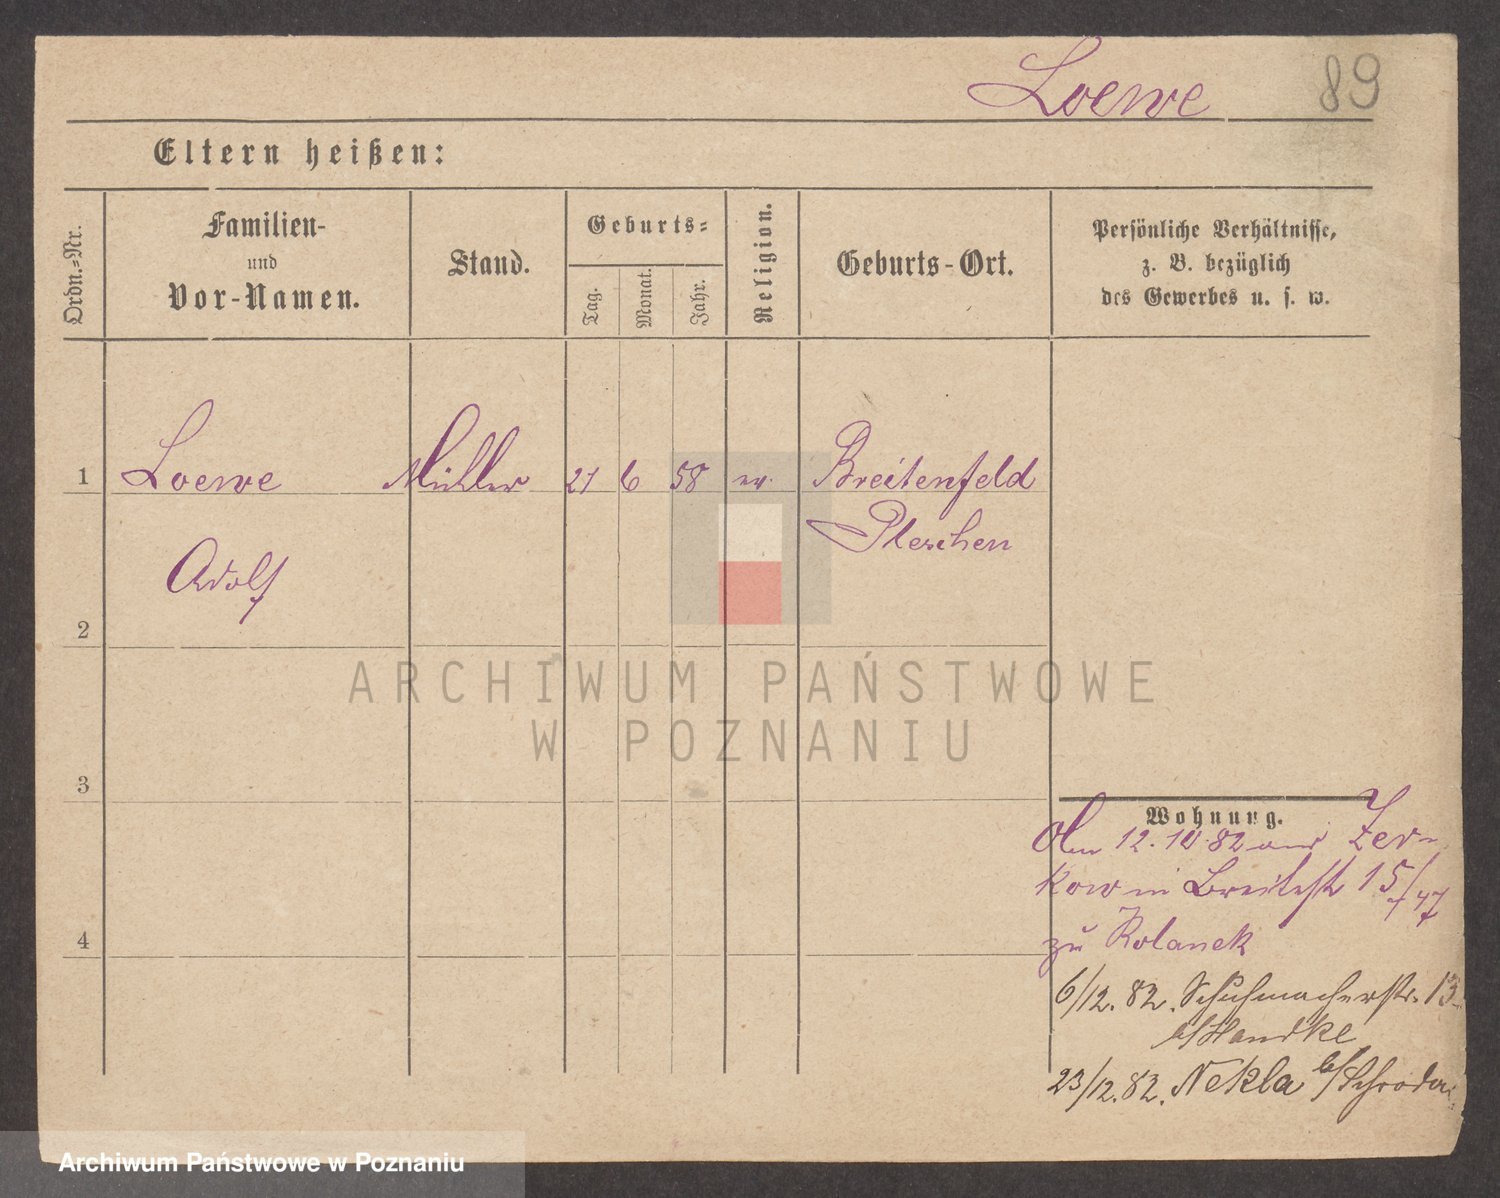 Loewe 89
Eltern heißen:
Ordn.-Nr.
Familien-
und
Vor-Namen.
Stand.
Geburts-
Tag.
Monat.
Jahr.
Religion.
Geburts-Ort.
Persönliche Verhältnisse,
z. B. bezüglich
des Gewerbes u. s. w.
1 Loewe Müller 21 6 58 ev. Breitenfeld
Pleschen
Adolf
2
3
4
Wohnung.
Am 12.10.82 aus Zer-
kow in Breitestr 15/
zu Rolanek
6/12.82. Schuhmacherstr. 13
b/ Handke
23/12.82. Nekla b/ Schroda.
ARCHIWUM PAŃSTWOWE
W POZNANIU
Archiwum Państwowe w Poznaniu